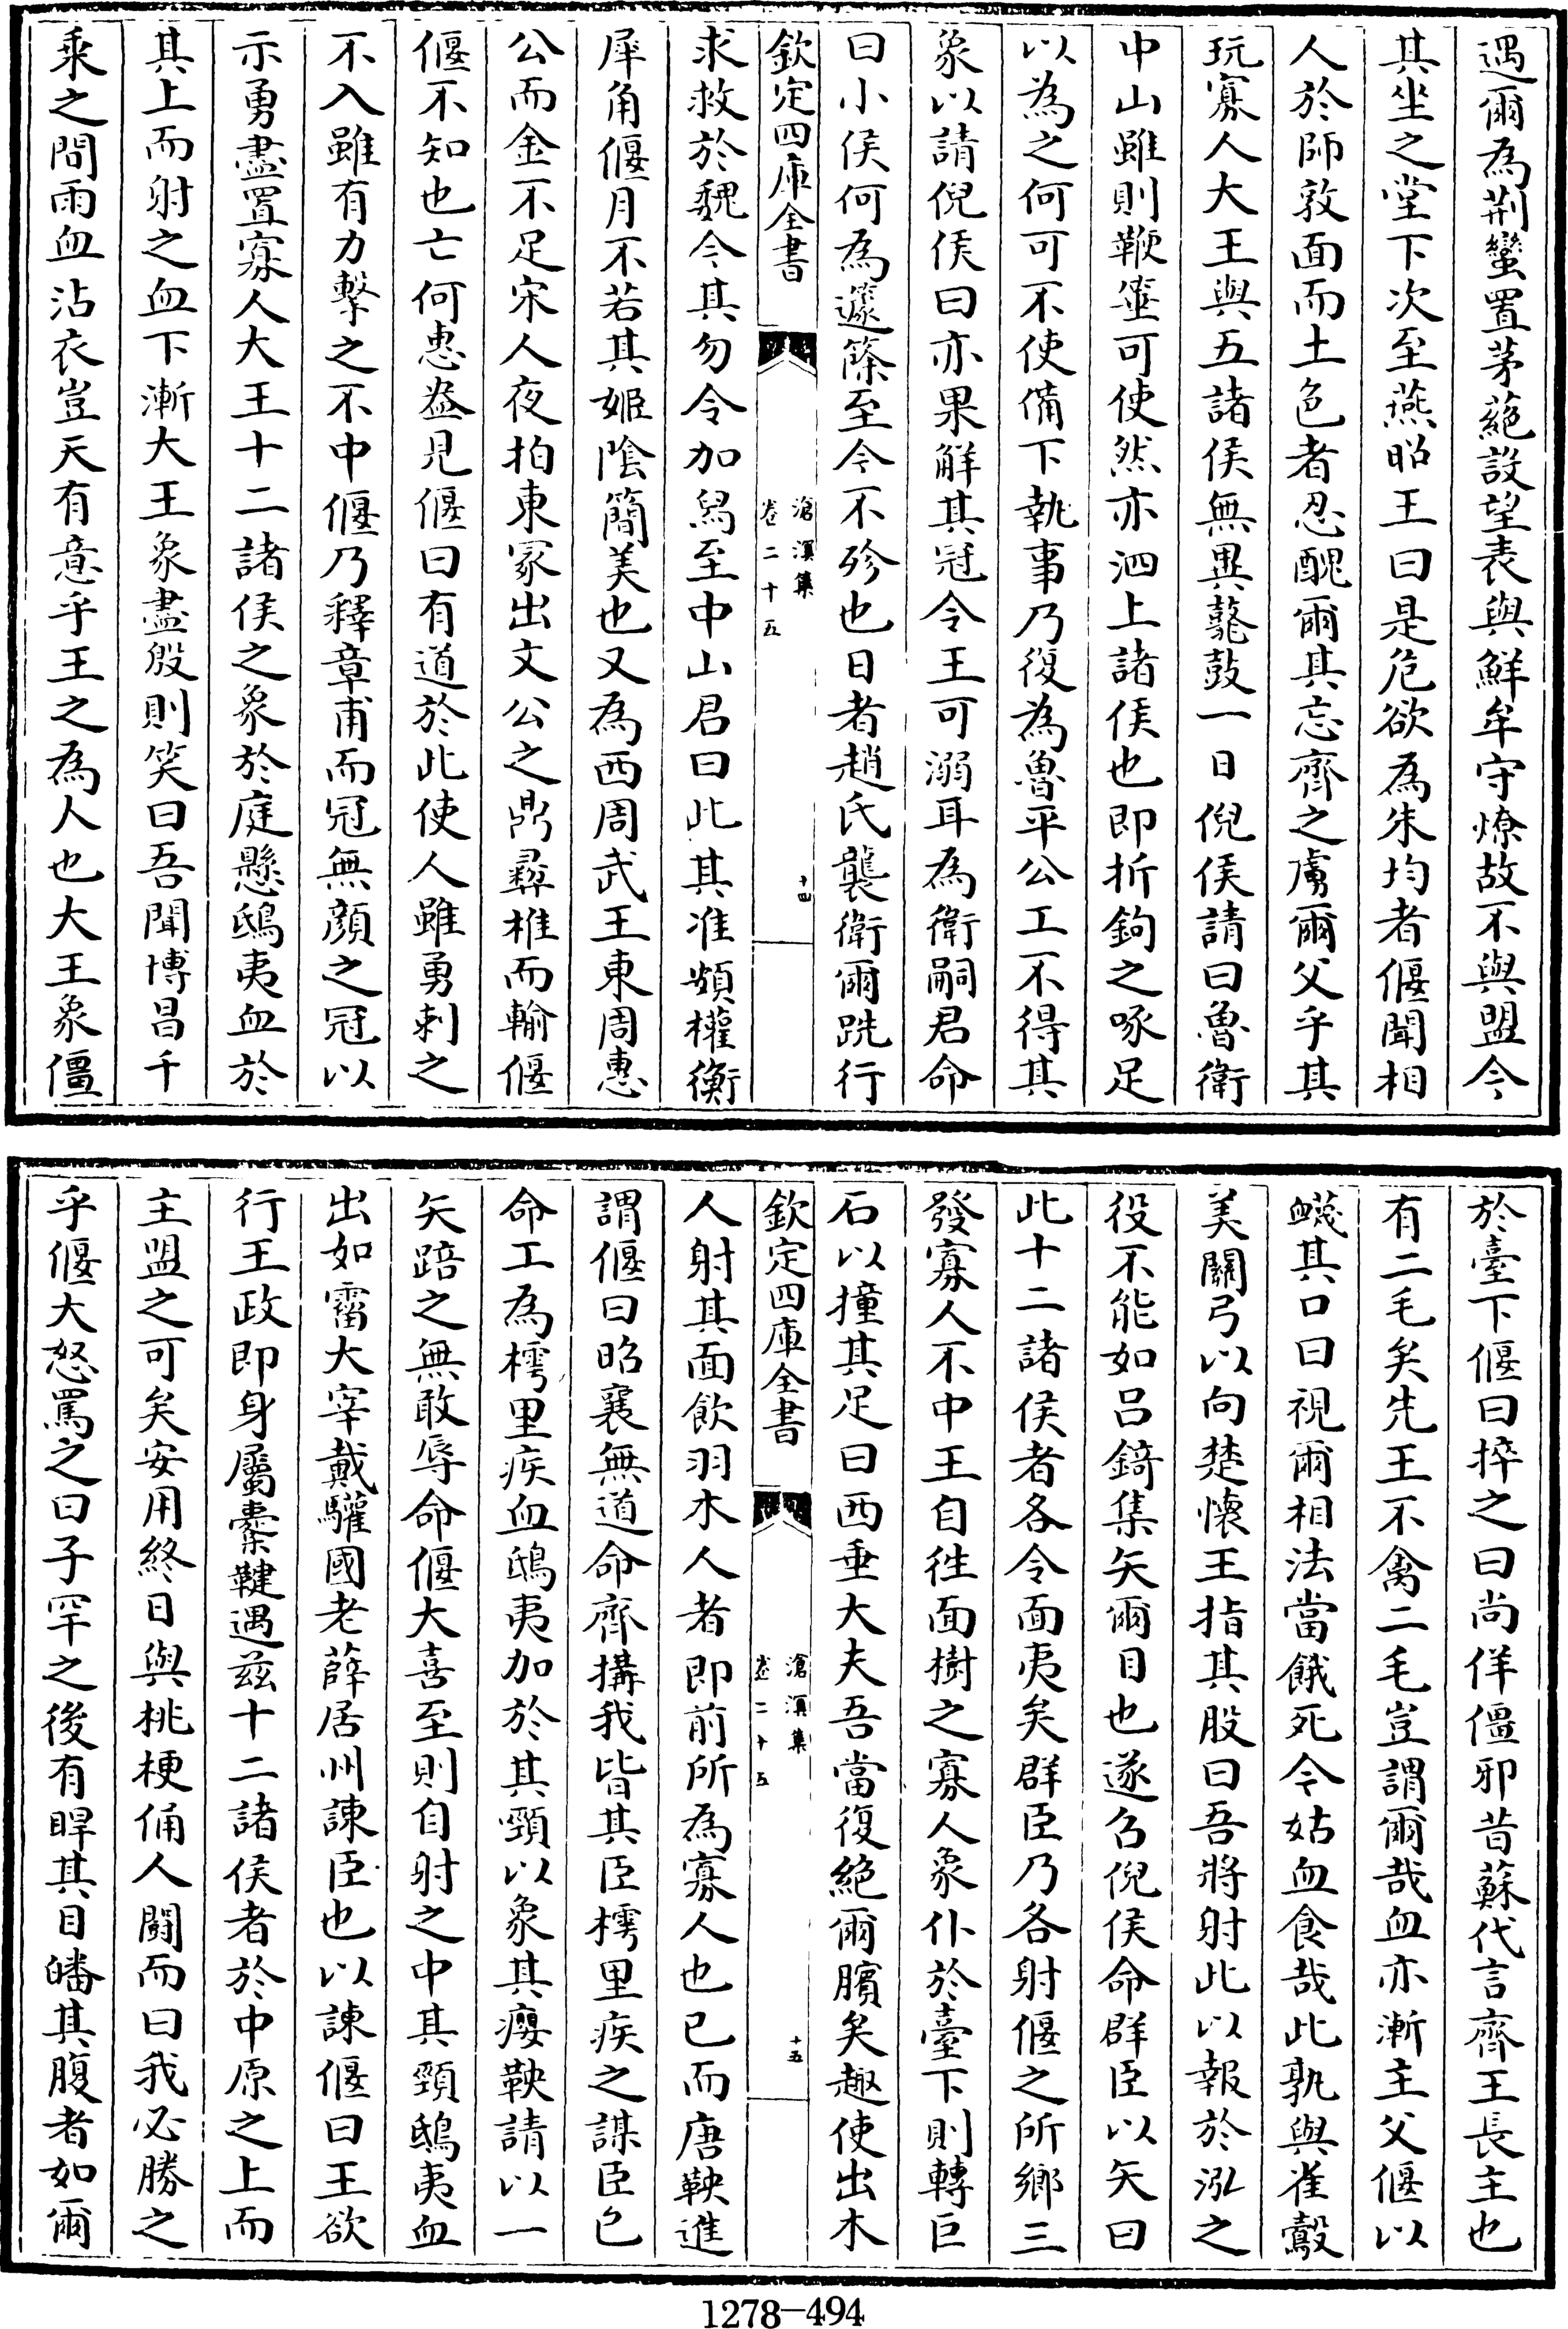 遇爾為荆蠻置茅蕝設望表與鮮牟守燎故不與盟今
其坐之堂下次至燕昭王曰是危欲為朱均者偃聞相
人於師敦面而土色者忍醜爾其忘齊之虜爾父乎其
玩寡人大王與五諸侯無異鼛鼓一日倪侯請曰魯衛
中山雖則鞭箠可使然亦泗上諸侯也即折鉤之啄足
以為之何可不使備下執事乃復為魯平公工不得其
象以請倪侯曰亦果解其冠令王可溺耳為衛嗣君命
曰小侯何為籧篨至今不殄也日者趙氏襲衛爾跣行
欽定四庫全書
滄溟集
卷二十五
十四
求救於魏令其勿令加舄至中山君曰此其准頞權衡
犀角偃月不若其姬陰簡美也又為西周武王東周惠
公而金不足宋人夜拍東冢出文公之鼎彞椎而輸偃
偃不知也亡何惠盎見偃曰有道於此使人雖勇刺之
不入雖有力擊之不中偃乃釋章甫而冠無顔之冠以
示勇盡置寡人大王十二諸侯之象於庭懸鴟夷血於
其上而射之血下漸大王象盡殷則笑曰吾聞博昌千
乘之間雨血沾衣豈天有意乎王之為人也大王象僵
於臺下偃曰捽之曰尚佯僵邪昔蘇代言齊王長主也
有二毛矣先王不禽二毛豈謂爾哉血亦漸主父偃以
衊其口曰視爾相法當餓死令姑血食哉此孰與雀鷇
美關弓以向楚懷王指其股曰吾將射此以報於泓之
役不能如呂錡集矢爾目也遂召倪侯命群臣以矢曰
此十二諸侯者各令面夷矣群臣乃各射偃之所鄉三
發寡人不中王自徃面樹之寡人象仆於臺下則轉巨
石以撞其足曰西垂大夫吾當復絕爾臏矣趣使出木
欽定四庫全書
滄溟集
卷二十五
十五
人射其面飲羽木人者即前所為寡人也已而唐鞅進
謂偃曰昭襄無道命齊搆我皆其臣樗里疾之謀臣已
命工為樗里疾血鴟夷加於其頸以象其癭鞅請以一
矢踣之無敢辱命偃大喜至則自射之中其頸鴟夷血
出如霤大宰戴驩國老薛居州諫臣也以諫偃曰王欲
行王政即身屬櫜鞬遇兹十二諸侯者於中原之上而
主盟之可矣安用終日與桃梗俑人鬭而曰我必勝之
乎偃大怒罵之曰子罕之後有睅其目皤其腹者如爾
1278-494